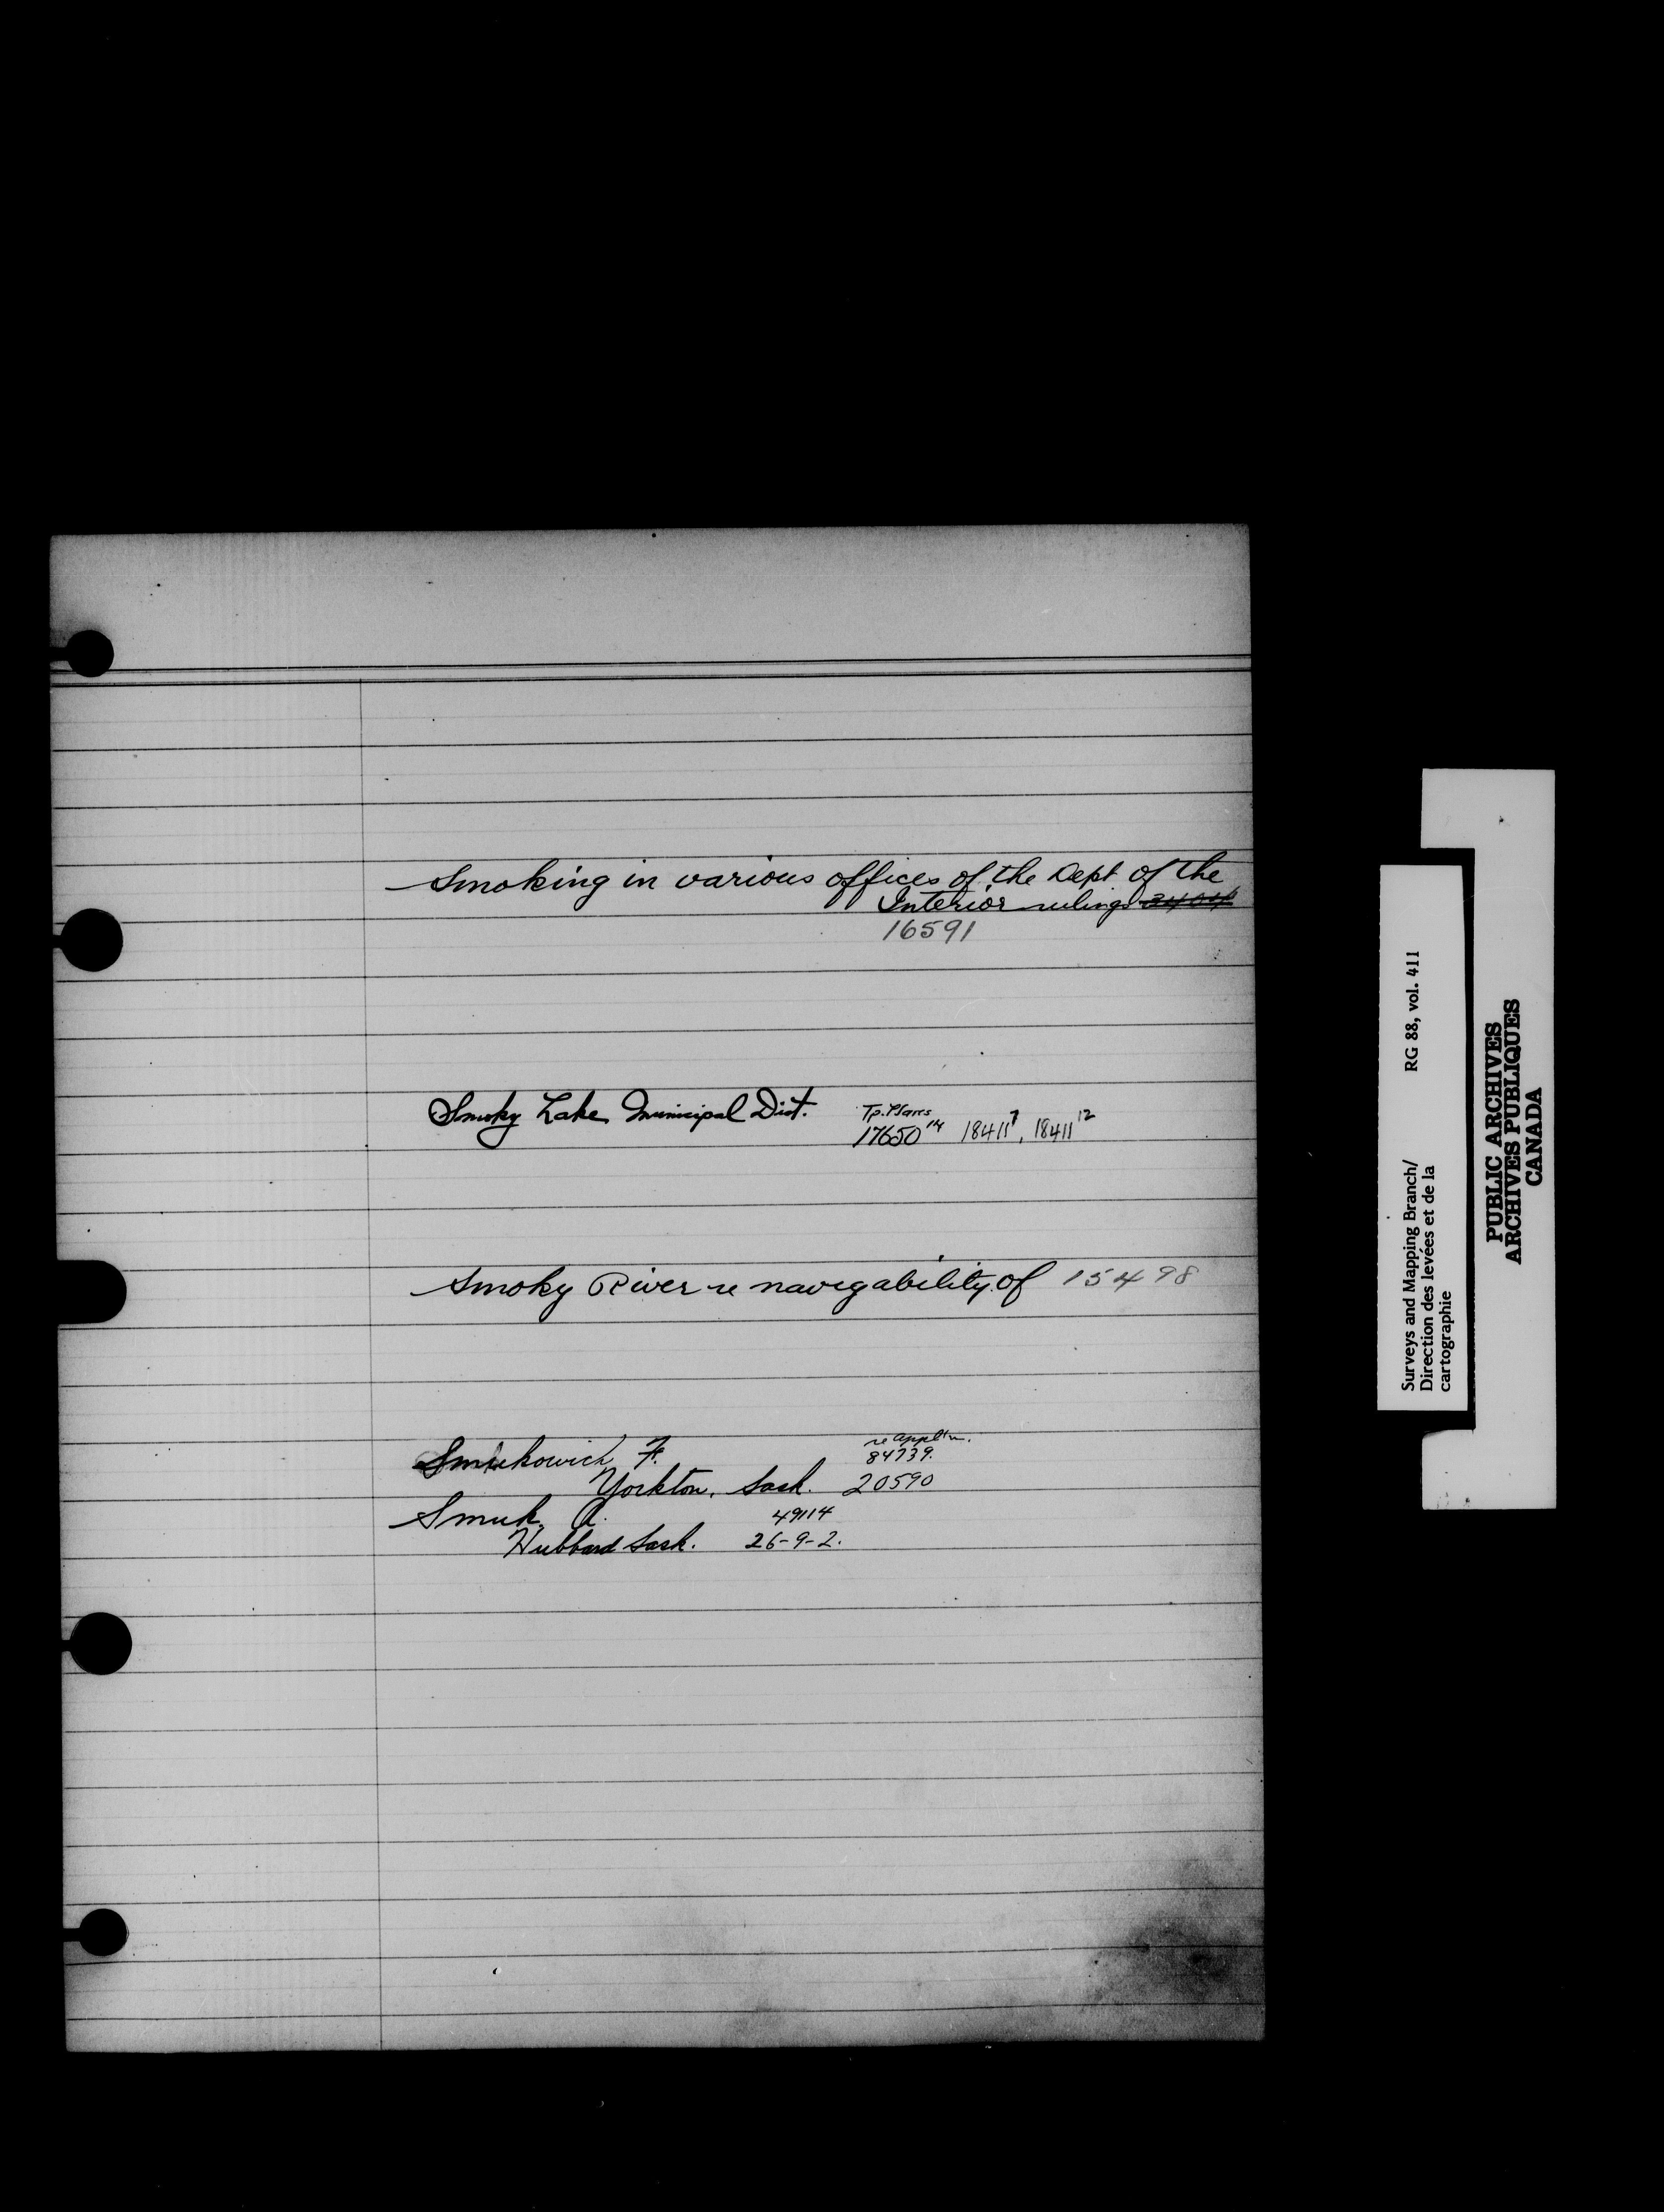 Smoking in various offices of the Dept of the
Interior rulings 3404
16591
Smoky Lake Municipal Dist. Tp. Plans
17650¹⁴ 18411⁷, 18411¹²
Smoky River re navigability of 15498
re appl'tn.
Smukowich, F. 84739.
Yorkton, Sask. 20590
Smuk, A. 49114
Hubbard Sask. 26-9-2.
Surveys and Mapping Branch/ RG 88, vol. 411
Direction des levées et de la
cartographie
PUBLIC ARCHIVES
ARCHIVES PUBLIQUES
CANADA